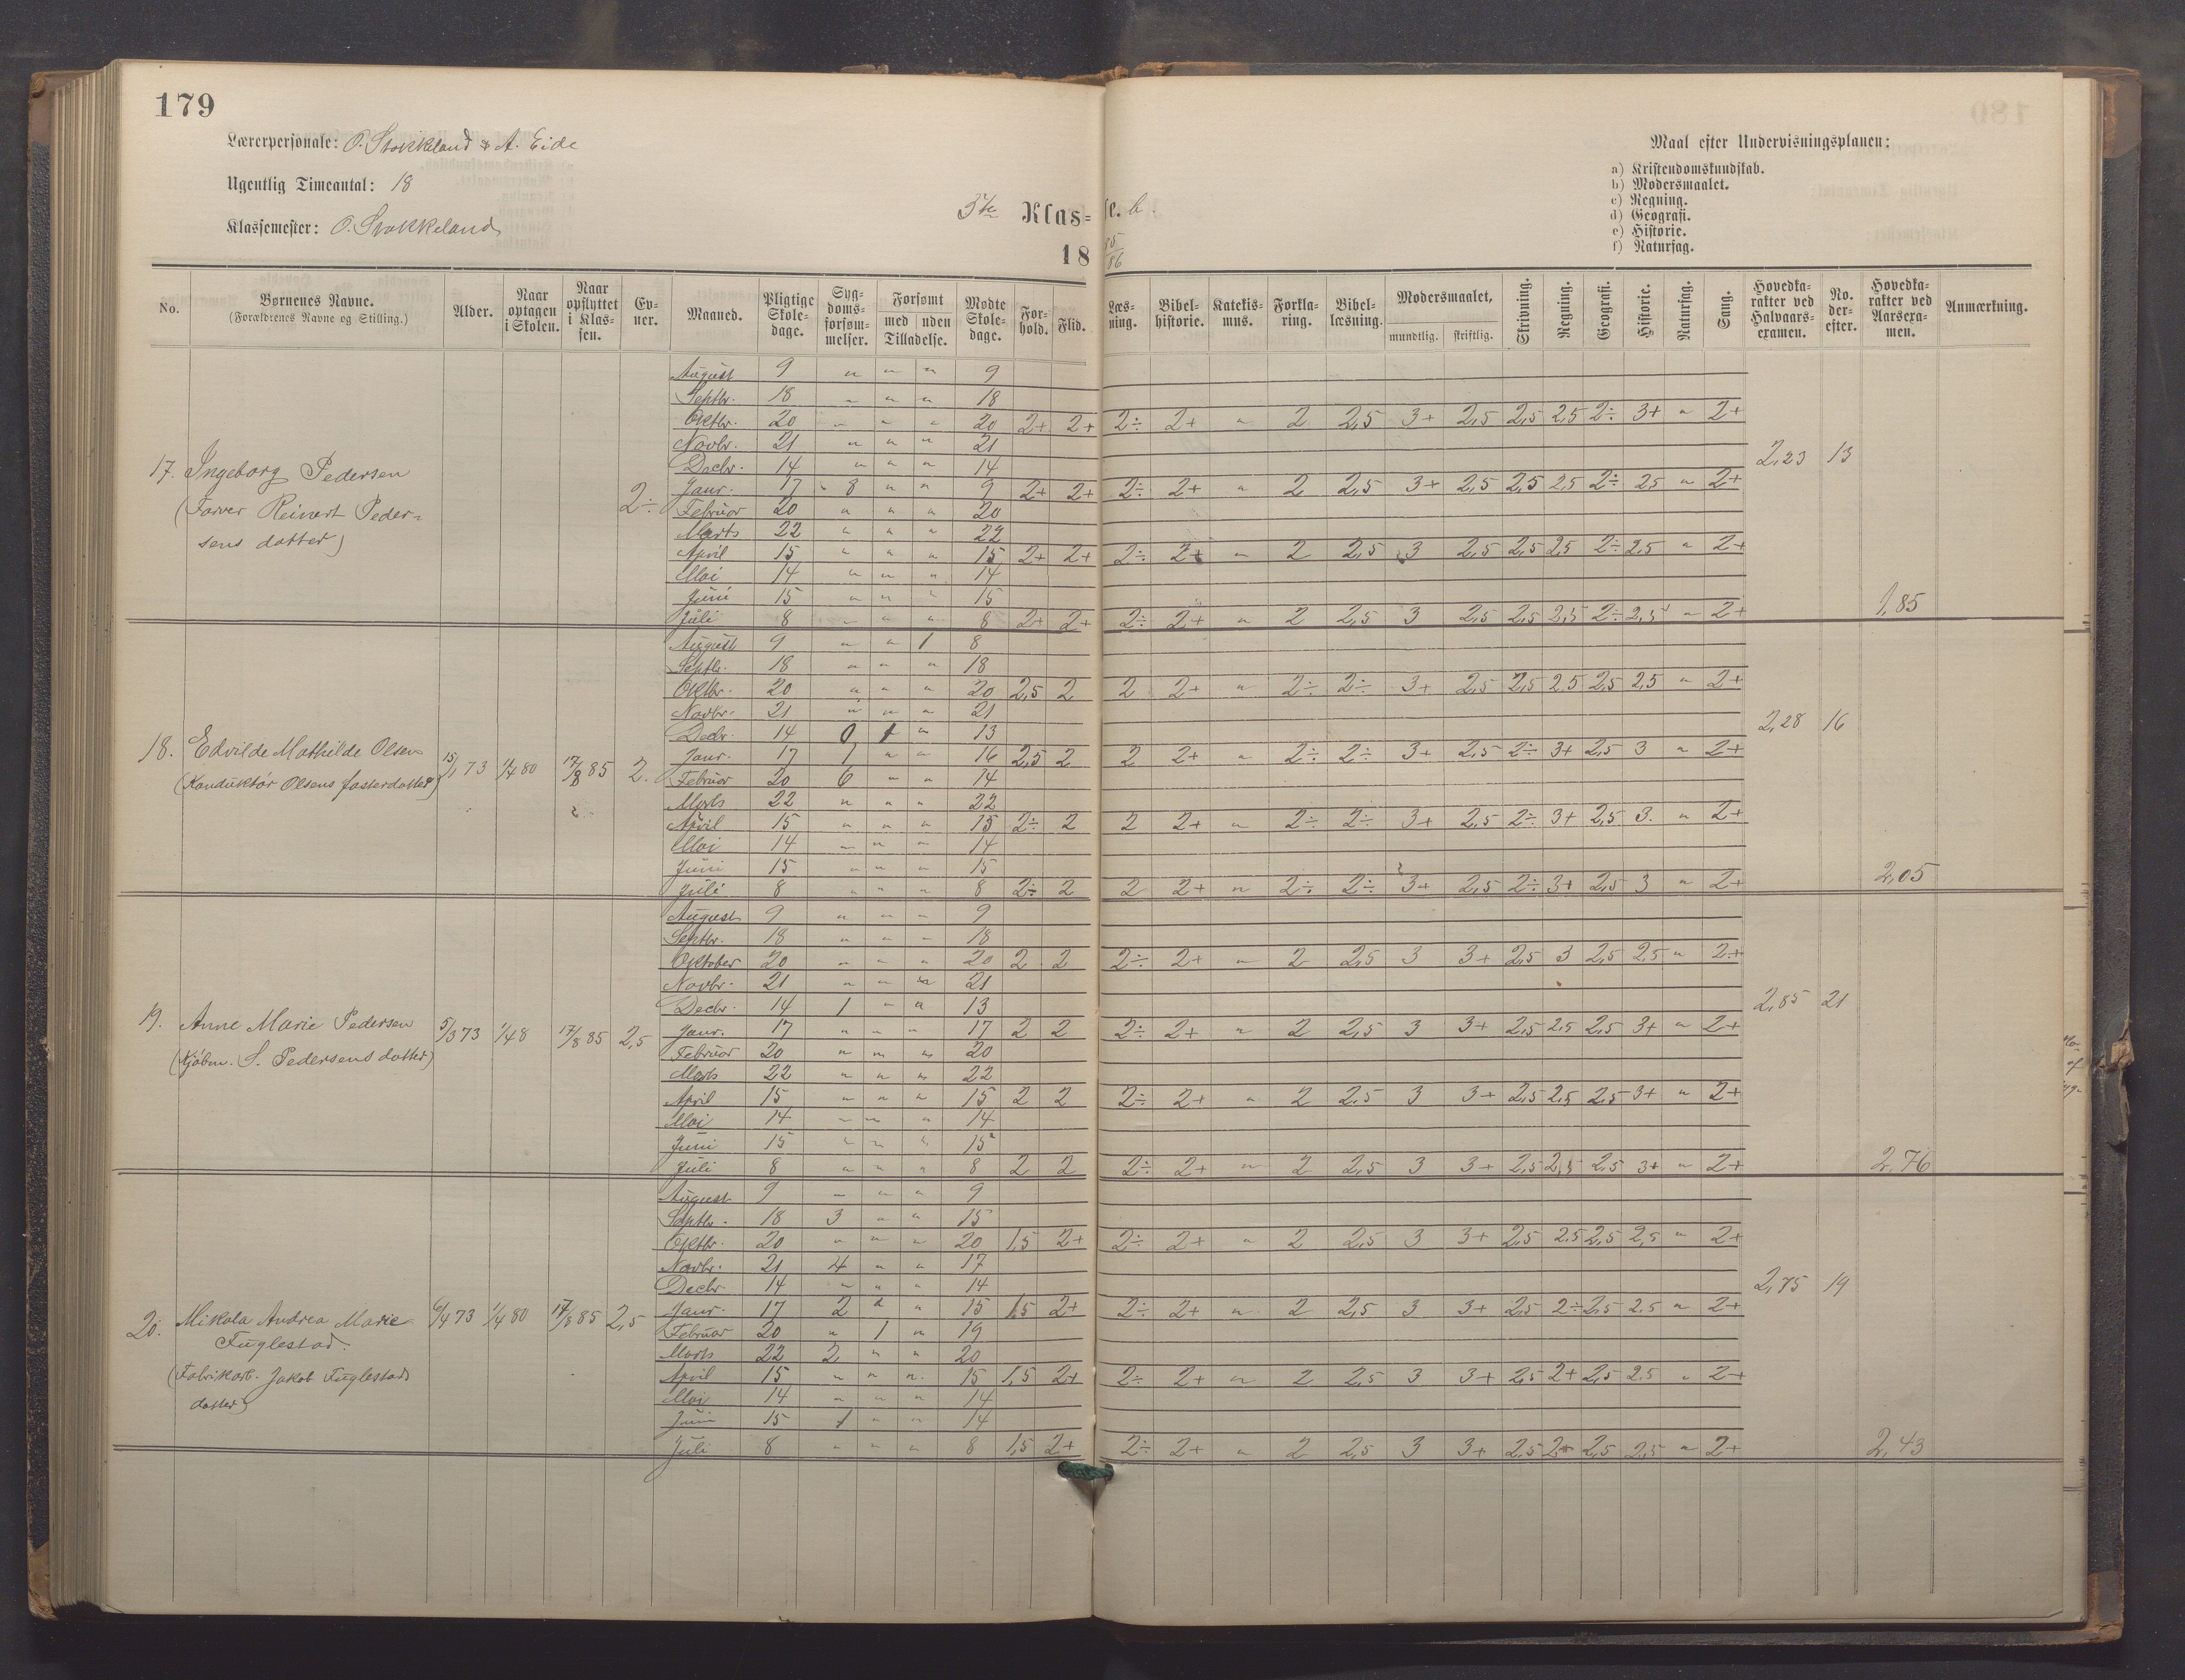 179
Lærerpersonale: O. Stokkeland & A. Eide
Ugentlig Timeantal: 18
Klassemester: O. Stokkeland
5te Klasse. b.
18 85/86
Maal efter Undervisningsplanen:
a) Kristendomskundskab.
b) Modersmaalet.
c) Regning.
d) Geografi.
e) Historie.
f) Naturfag.
No. | Børnenes Navne. (Forældrenes Navne og Stilling.) | Alder. | Naar optagen i Skolen. | Naar opflyttet i Klassen. | Evner. | Maaned. | Pligtige Skoledage. | Sygdomsforsømmelser. | Forsømt med uden Tilladelse. | Mødte Skoledage. | Forhold. | Flid. | Læsning. | Bibelhistorie. | Katekismus. | Forklaring. | Bibellæsning. | Modersmaalet, mundtlig. skriftlig. | Skrivning. | Regning. | Geografi. | Historie. | Naturfag. | Sang. | Hovedkarakter ved Halvaarsexamen. | No. derefter. | Hovedkarakter ved Aarsexamen. | Anmærkning.
17. Ingeborg Pedersen
(Farver Reinert Peder-
sens datter)
2÷
August 9 " " " 9
Septbr. 18 " " " 18
Oktbr. 20 " " " 20 2+ 2+ 2÷ 2+ " 2 2,5 3+ 2,5 2,5 2,5 2÷ 3+ " 2+
Novbr. 21 " " " 21
Decbr. 14 " " " 14 2,23 13
Janr. 17 8 " " 9 2+ 2+ 2÷ 2+ " 2 2,5 3+ 2,5 2,5 2,5 2÷ 2,5 " 2+
Februar 20 " " " 20
Marts 22 " " " 22
April 15 " " " 15 2+ 2+ 2÷ 2+ " 2 2,5 3 2,5 2,5 2,5 2÷ 2,5 " 2+
Mai 14 " " " 14
Juni 15 " " " 15 1,85
Juli 8 " " " 8 2+ 2+ 2÷ 2+ " 2 2,5 3 2,5 2,5 2,5 2÷ 2,5 " 2+
18. Edvilde Mathilde Olsen
(Konduktør Olsens fosterdatter)
15/1 73 1/4 80 17/8 85 2.
August 9 " " 1 8
Septbr. 18 " " " 18
Oktbr. 20 " " " 20 2,5 2 2 2+ " 2÷ 2÷ 3+ 2,5 2,5 2,5 2,5 2,5 " 2+
Novbr. 21 " " " 21
Decbr. 14 0 1 " 13 2,28 16
Janr. 17 1 " " 16 2,5 2 2 2+ " 2÷ 2÷ 3+ 2,5 2÷ 3+ 2,5 3 " 2+
Februar 20 6 " " 14
Marts 22 " " " 22
April 15 " " " 15 2÷ 2 2 2+ " 2÷ 2÷ 3+ 2,5 2÷ 3+ 2,5 3. " 2+
Mai 14 " " " 14
Juni 15 " " " 15 2,05
Juli 8 " " " 8 2÷ 2 2 2+ " 2÷ 2÷ 3+ 2,5 2÷ 3+ 2,5 3 " 2+
19. Anne Marie Pedersen
(Kjøbm. S. Pedersens datter)
5/3 73 1/4 8 17/8 85 2,5
August 9 " " " 9
Septbr. 18 " " " 18
Oktober 20 " " " 20 2 2 2÷ 2+ " 2 2,5 3 3+ 2,5 3 2,5 2,5 " 2+
Novbr. 21 " " " 21
Decbr. 14 1 " " 13 2,85 21
Janr. 17 " " " 17 2 2 2÷ 2+ " 2 2,5 3 3+ 2,5 2,5 2,5 3+ " 2+
Februar 20 " " " 20
Marts 22 " " " 22
April 15 " " " 15 2 2 2÷ 2+ " 2 2,5 3 3+ 2,5 2,5 2,5 3+ " 2+
Mai 14 " " " 14
Juni 15 " " " 15
Juli 8 " " " 8 2 2 2÷ 2+ " 2 2,5 3 3+ 2,5 2,5 2,5 3+ " 2+ 2,76
20. Mikala Andrea Marie
Fuglestad.
(Fabrikarb. Jakob Fuglestads
datter)
6/4 73 1/4 80 17/8 85 2,5
August 9 " " " 9
Septbr. 18 3 " " 15
Oktbr. 20 " " " 20 1,5 2+ 2÷ 2+ " 2 2,5 3 3+ 2,5 2,5 2,5 2,5 " 2+
Novbr. 21 4 " " 17
Decbr. 14 " " " 14 2,75 19
Janr. 17 2 " " 15 1,5 2+ 2÷ 2+ " 2 2,5 3 3+ 2,5 2÷ 2,5 2,5 " 2+
Februar 20 " 1 " 19
Marts 22 2 " " 20
April 15 " " " 15 1,5 2+ 2÷ 2+ " 2 2,5 3 3+ 2,5 2+ 2,5 2,5 " 2+
Mai 14 " " " 14
Juni 15 1 " " 14
Juli 8 " " " 8 1,5 2+ 2÷ 2+ " 2 2,5 3 3+ 2,5 2+ 2,5 2,5 " 2+ 2,43